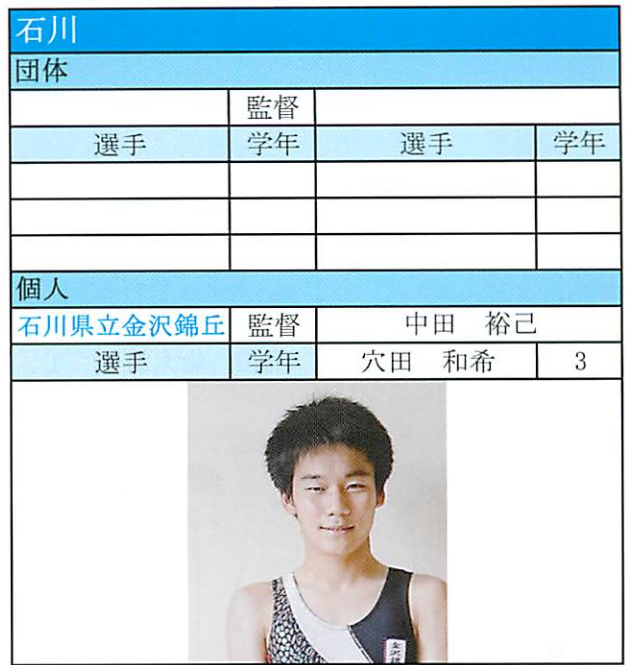 石川
団体
監督
選手 学年 選手 学年
個人
石川県立金沢錦丘 監督 中田 裕己
選手 学年 穴田 和希 3
金沢錦